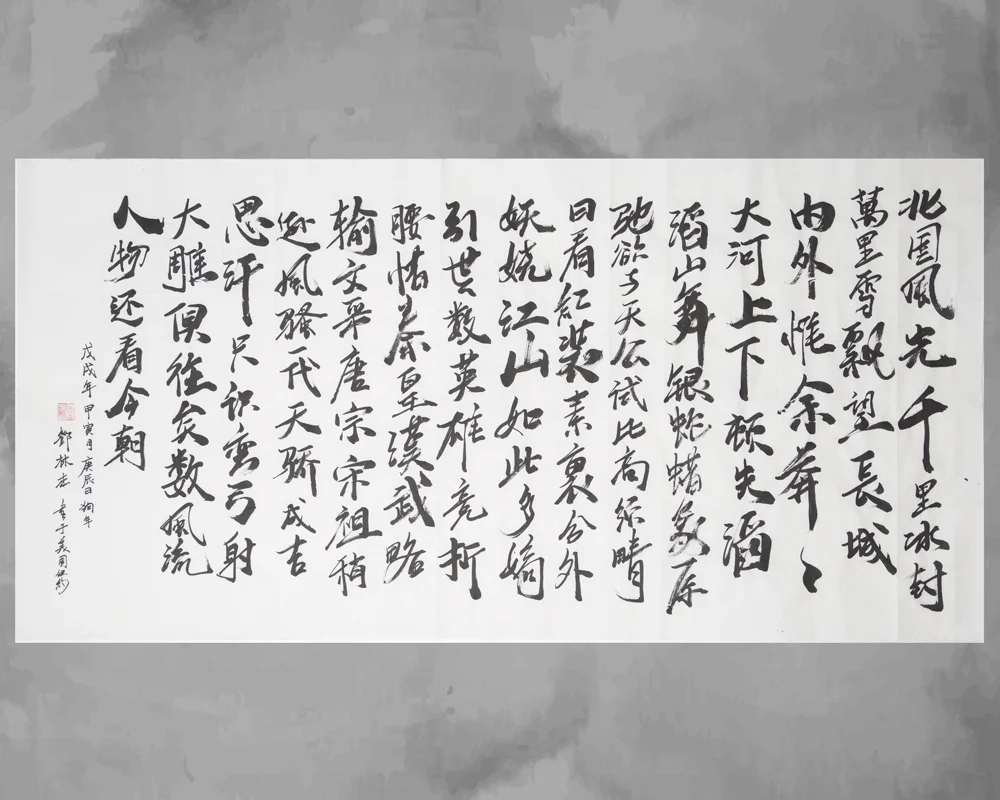 北国風光千里冰封
萬里雪飘望長城
内外惟余莽〻
大河上下顿失滔
滔山舞银蛇蜡象原
驰欲与天公试比高须晴
日看红裝素裹分外
妖娆江山如此多娇
引世数英雄竞折
腰惜秦皇漢武略
输文采唐宗宋祖稍
逊風骚一代天骄成吉
思汗只识弯弓射
大雕俱往矣数風流
人物还看今朝
戊戌年甲寅月庚辰日狗年
鄧林杰书于美国纽约